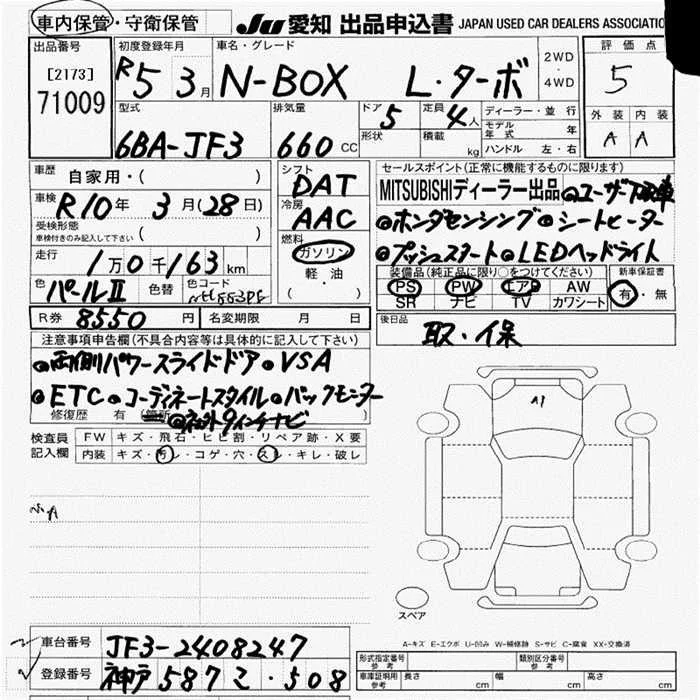 車内保管・守衛保管 JU 愛知 出品申込書 JAPAN USED CAR DEALERS ASSOCIATIO
出品番号 初度登録年月 車名・グレード 評価点
[2173] R5 3月 N-BOX L・ターボ 2WD・4WD 5
71009
型式 排気量 ドア 5 定員 4人 ディーラー・並行 外装 内装
6BA-JF3 660 CC 形状 積載 kg モデル年式 年 A A
ハンドル 左・右
車歴 自家用・( ) シフト DAT セールスポイント(正常に機能するものに限ります)
車検 R10年 3月(28日) 冷房 AAC MITSUBISHIディーラー出品 ◎ユーザー下取車
受検形態 車検付きのみ記入して下さい ( ) ◎ホンダセンシング ◎シートヒーター
燃料 ガソリン ◎プッシュスタート ◎LEDヘッドライト
走行 1万0千163km 軽・油 装備品(純正品に限り○をつけてください) 新車保証書
色 パールⅡ 色替 色コード (・ ) PS PW エアB AW 有・無
SR ナビ TV カワシート
R券 8550円 名変期限 月 日 後日品
取・保
注意事項申告欄(不具合内容等は具体的に記入して下さい)
◎両側パワースライドドア ◎VSA
◎ETC ◎コーディネートスタイル ◎バックモニター
修復歴 有 (箇所 ) ◎ 9インチナビ
検査員記入欄 FW キズ・飛石・ヒビ割・リペア跡・X要
内装 キズ・汚レ・コゲ・穴・スレ・キレ・破レ
A1
スペア
A-キズ E-エクボ U-凹み W-補修跡 S-サビ C-腐食 XX-交換済
車台番号 JF3-2408247
登録番号 神戸 587 こ・508
形式指定番号 参考 類別区分番号 参考
車庫証明用 参考 長さ cm 幅 cm 高さ cm